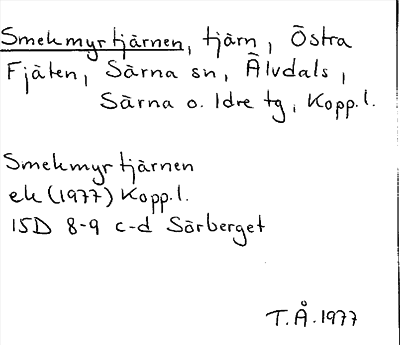 Smekmyrtjärnen, tjärn, Östra
Fjäten, Särna sn, Älvdals,
Särna o. Idre tg, Kopp.l.
Smekmyrtjärnen
ek (1977) Kopp.l.
15D 8-9 c-d Sörberget
T.Å. 1977